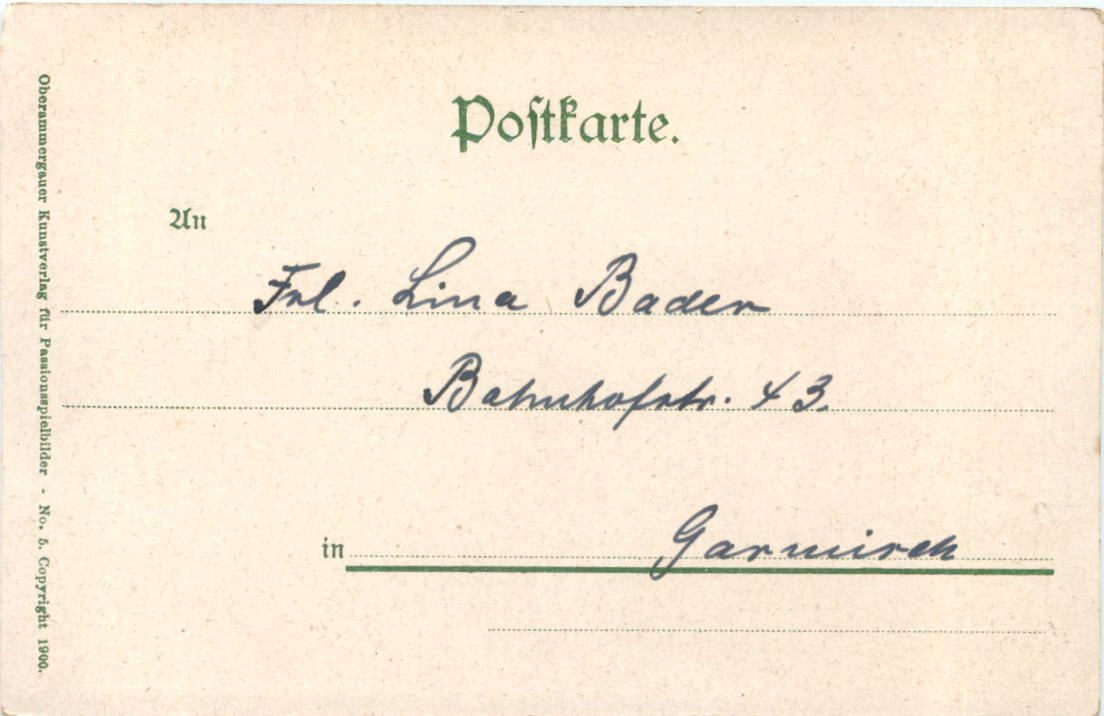 Postkarte.
An
Frl. Lina Bader
Bahnhofstr. 43.
in Garmisch
Oberammergauer Kunstverlag für Passionsspielbilder - No. 5. Copyright 1900.